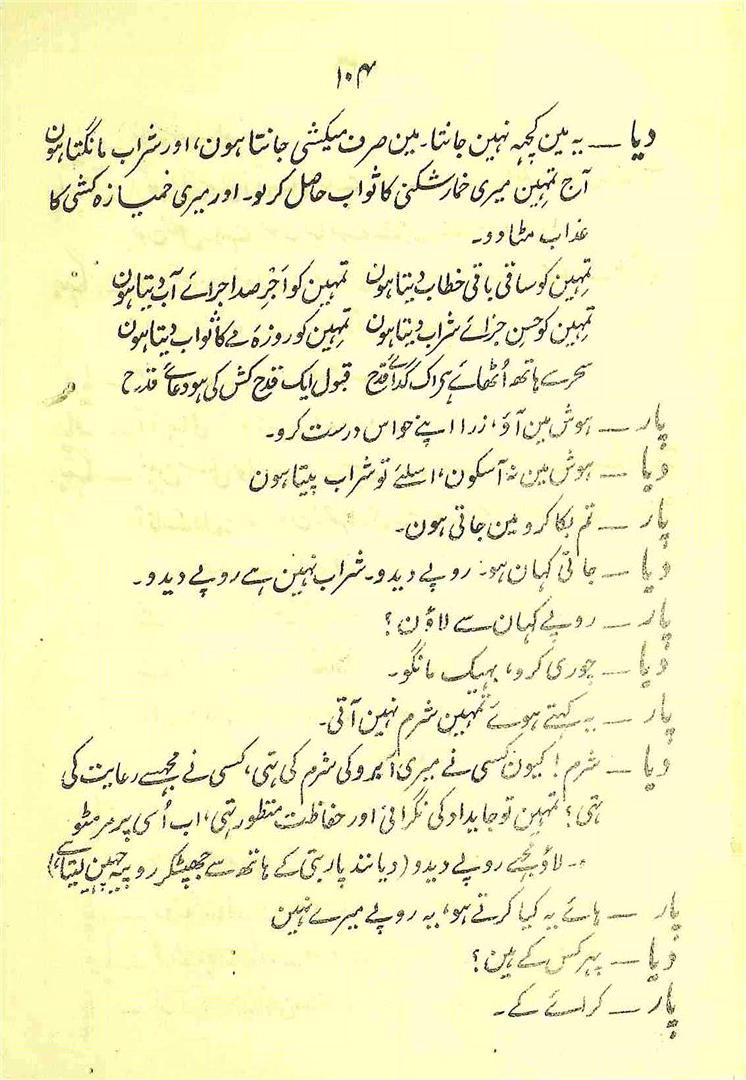 ۱۰۴
دیا — یہ مین کچہہ نہین جانتا۔ مین صرف میکشی جانتا ہون، اور شراب مانگتا ہون
آج تمہین میری خمار شکنی کا ثواب حاصل کر لو۔ اور میری خمیازہ کشی کا
عذاب مٹا دو۔
تمہین کو ساقی باقی خطاب دیتا ہون تمہین کو اَجرِ صدا جرائے آب دیتا ہون
تمہین کو حسن جزائے شراب دیتا ہون تمہین کو روزۂ مے کا ثواب دیتا ہون
سحر سے ہاتھ اُٹھائے ہراک گدائے قدح قبول ایک قدح کش کی ہو دعائے قدح
پار — ہوش مین آؤ، زرا اپنے حواس درست کرو۔
دیا — ہوش مین نہ آسکون، اسلئے تو شراب پیتا ہون
پار — تم بکا کرو مین جاتی ہون۔
دیا — جاتی کہان ہو۔ روپے دیدو۔ شراب نہین ہے روپے دیدو۔
پار — روپے کہان سے لاؤن؟
دیا — چوری کرو، بہیک مانگو۔
پار — یہ کہتے ہوئے تمہین شرم نہین آتی۔
دیا — شرم! کیون کسی نے میری آبرو کی شرم کی تہی، کسی نے مجہسے رعایت کی
تہی؟ تمہین تو جایداد کی نگرانی اور حفاظت منظور تہی، اب اُسی پر مر مٹو
۔ لاؤ مجہے روپے دیدو (دیانند پاربتی کے ہاتھ سے جھپٹکر روپیہ چہین لیتا ہے)
پار — ہائے یہ کیا کرتے ہو، یہ روپے میرے نہین
دیا — پہر کس کے ہین؟
پار — کرائے کے۔